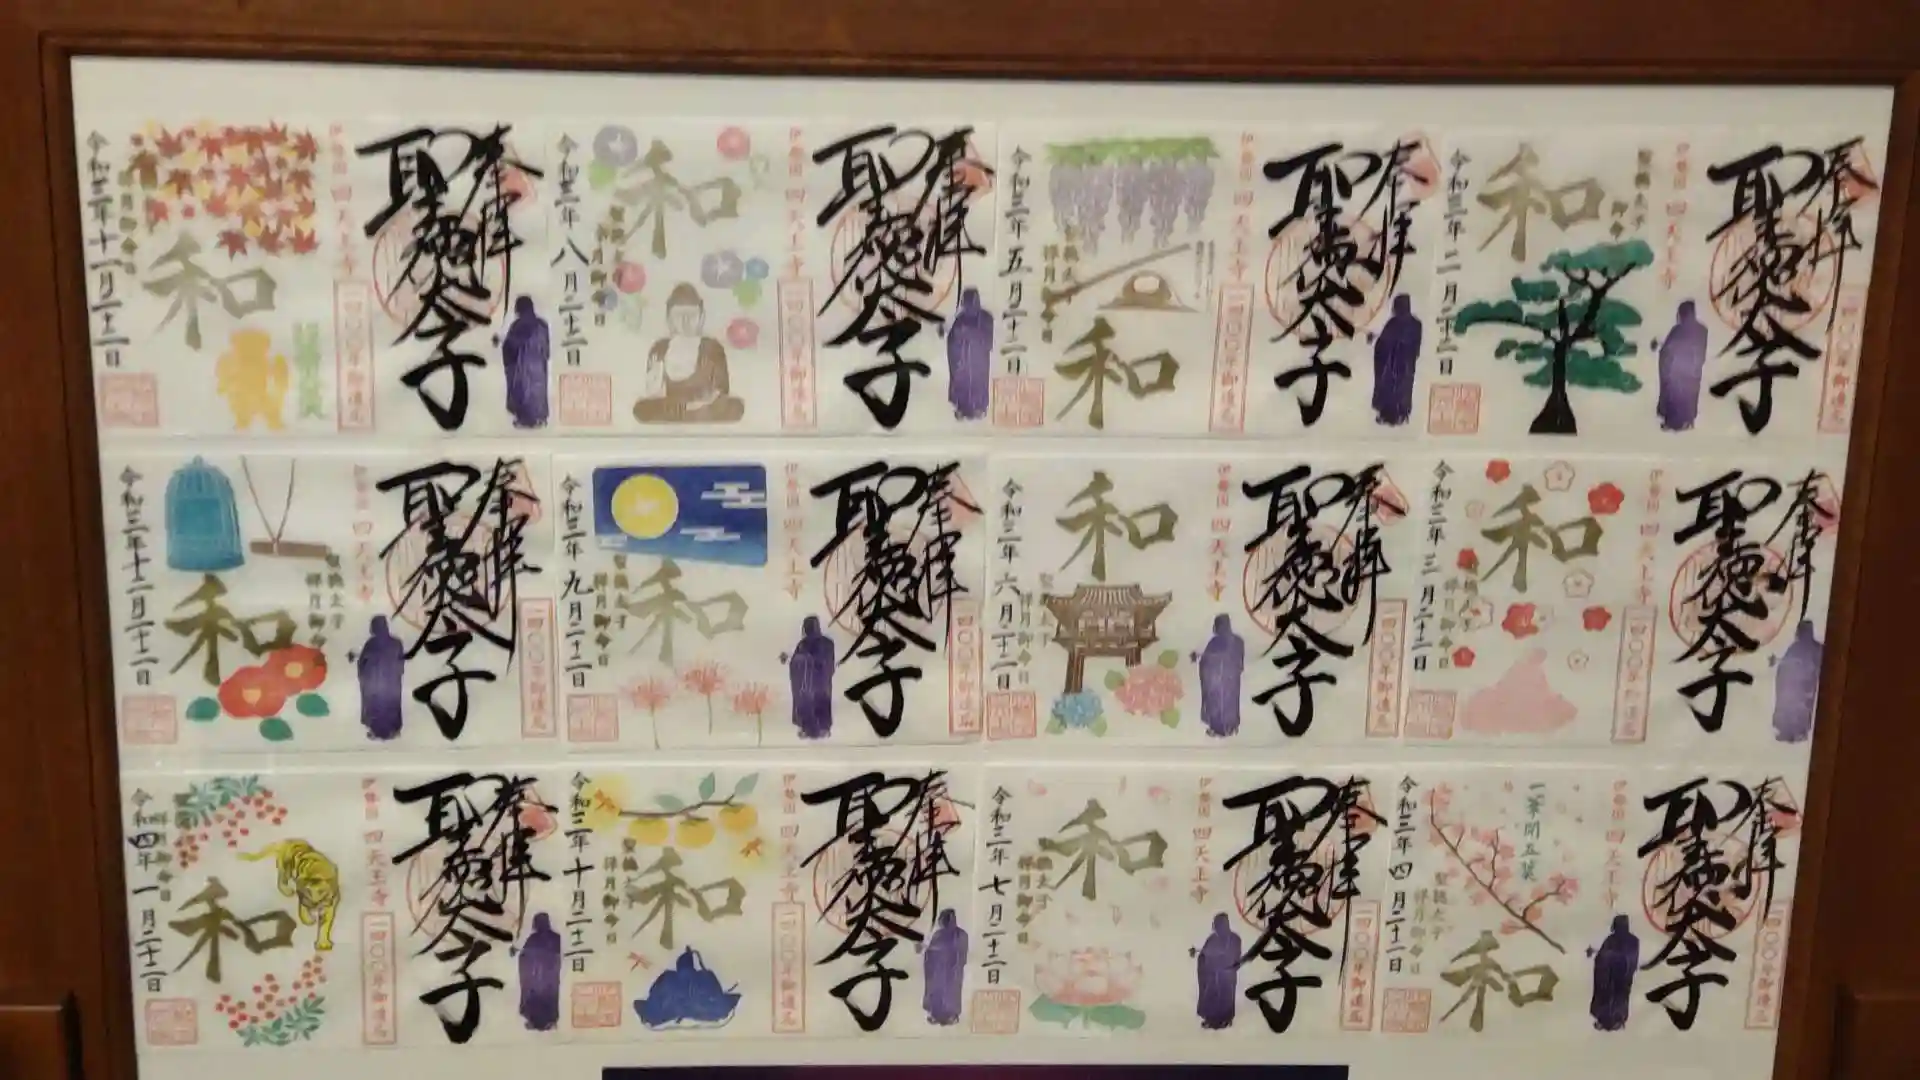 奉拝
聖徳太子
伊勢国 四天王寺
一四〇〇年御遠忌
聖徳太子
和
令和三年二月二十二日
奉拝
聖徳太子
伊勢国 四天王寺
一四〇〇年御遠忌
聖徳太子
祥月御命日
和
令和三年三月二十二日
奉拝
聖徳太子
伊勢国 四天王寺
一四〇〇年御遠忌
一華開五葉
聖徳太子
祥月御命日
和
令和三年四月二十二日
奉拝
聖徳太子
伊勢国 四天王寺
一四〇〇年御遠忌
和
令和三年五月二十二日
奉拝
聖徳太子
伊勢国 四天王寺
一四〇〇年御遠忌
聖徳太子
祥月御命日
和
令和三年六月二十二日
奉拝
聖徳太子
伊勢国 四天王寺
一四〇〇年御遠忌
聖徳太子
祥月御命日
和
令和三年七月二十二日
奉拝
聖徳太子
伊勢国 四天王寺
一四〇〇年御遠忌
聖徳太子
祥月御命日
和
令和三年八月二十二日
奉拝
聖徳太子
伊勢国 四天王寺
一四〇〇年御遠忌
聖徳太子
祥月御命日
和
令和三年九月二十二日
奉拝
聖徳太子
伊勢国 四天王寺
一四〇〇年御遠忌
聖徳太子
祥月御命日
和
令和三年十月二十二日
奉拝
聖徳太子
伊勢国 四天王寺
一四〇〇年御遠忌
和
令和三年十一月二十二日
奉拝
聖徳太子
伊勢国 四天王寺
一四〇〇年御遠忌
聖徳太子
祥月御命日
和
令和三年十二月二十二日
奉拝
聖徳太子
伊勢国 四天王寺
一四〇〇年御遠忌
祥月御命日
和
令和四年一月二十二日